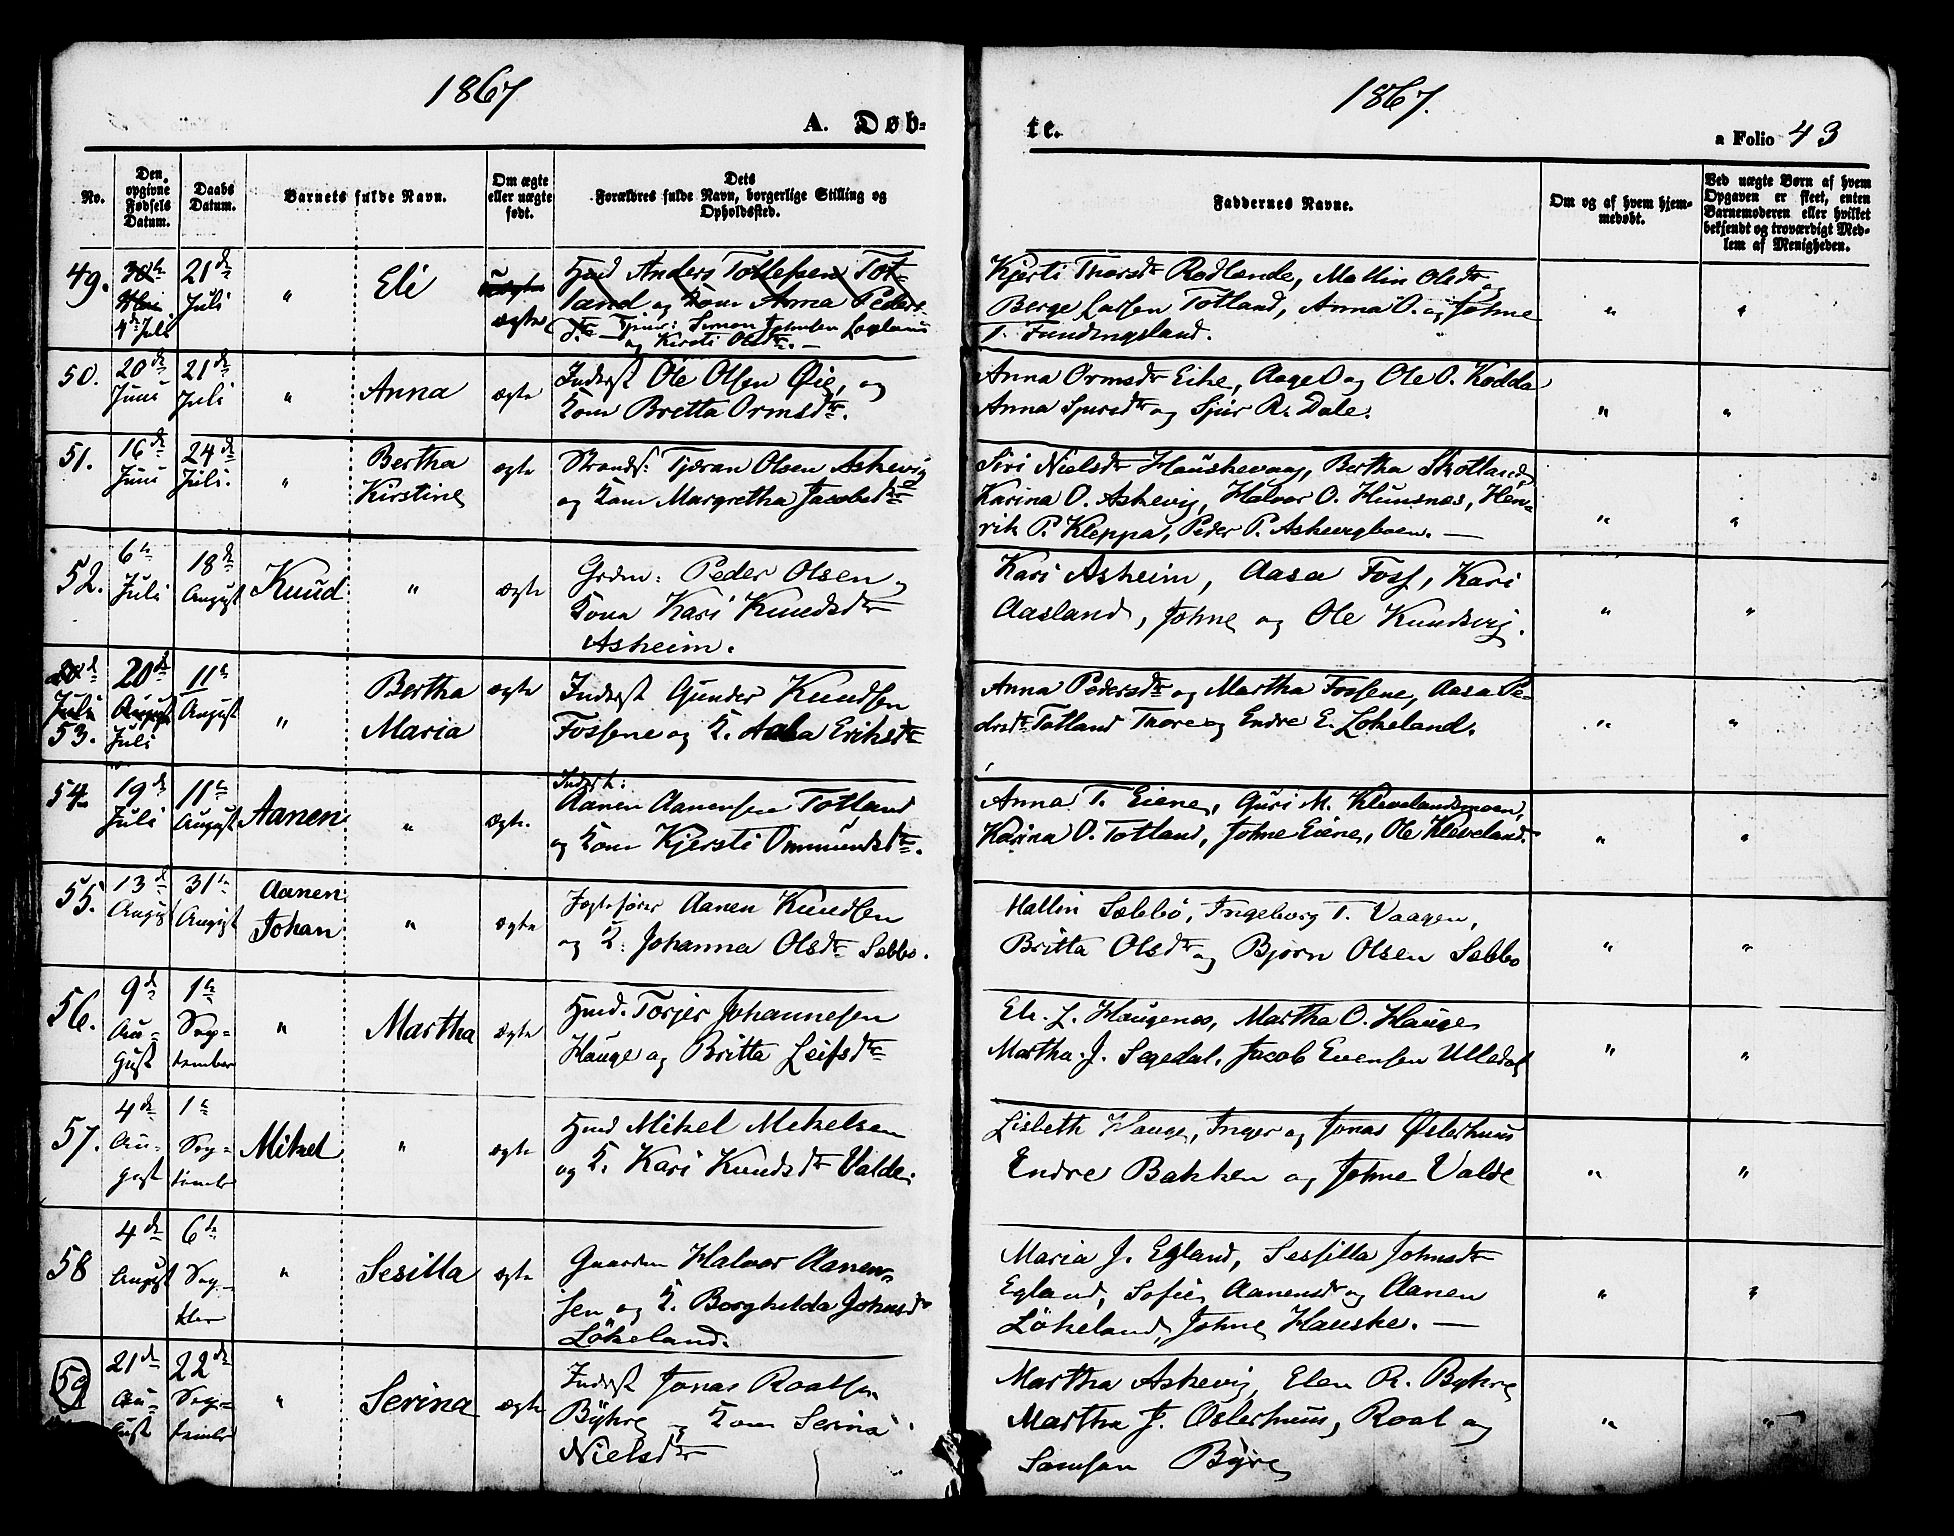 1867
1867.
A. Døb-
te.
a Folio 43
No.
Den opgivne Fødsels Datum.
Daabs Datum.
Barnets fulde Navn.
Om ægte eller uægte født.
Dets Forældres fulde Navn, borgerlige Stilling og Opholdssted.
Faddernes Navne.
Om og af hvem hjemmedøbt.
Ved uægte Børn af hvem Opgaven er skeet, enten Barnemoderen eller hvilket bekjendt og troværdigt Medlem af Menigheden.
49. 4de Juli 21de Juli " Eli ægte
Hmd Anders Tollefsen Tot-
land og Kone Anna Peders-
dtr Simon Johnsen
og Kirsti Olsdtr. —
Kjersti Thorsdtr Rodlende, Mallin Olsdtr og
Berge Larsen Totland, Anna O. og Johne
T. Fundingsland.
" "
50. 20de Juni 21de Juli " Anna ægte
Inderst Ole Olsen Øie, og
Kone Britta Ormsdtr.
Anna Ormsdtr Eike, Aage O og Ole O. Kodda
Anna Sjursdtr og Sjur R. Dale.
" "
51. 16de Juni 24de Juli. " Bertha Kirstine ægte
Strands: Tjæran Olsen Askevig
og Kone Margretha Jacobsdtr
Siri Nielsdtr Hauskevaag, Bertha Skotland
Karina O. Askevig, Halvor O. Hunsnes, Hen-
rik P. Kleppa, Peder P. Askevigboen. —
" "
52. 6te Juli 18de August Knud " ægte
Grdm: Peder Olsen,
Kone Kari Knudsdtr
Asheim.
Kari Asheim, Aasa Foss, Kari
Aasland, Johne og Ole Knudsvig.
" "
53. 20de August Juli 11te August " Bertha Maria ægte
Inderst Gunder Knudsen
Fossene og K. Aasa Eriksdtr
Anna Pedersdtr og Martha Fossene, Aasa Pe-
dersdtr Totland Thore og Endre E. Lokeland.
" "
54 19de Juli 11te August Aanen " ægte.
Inderst:
Aanen Aanensen Totland
og Kone Kjersti Ommundsdtr.
Anna T. Eiene, Guri M. Klevelandsmoen,
Karina O. Totland, Johne Eiene, Ole Kleveland.
" "
55. 13de August 31te August Aanen Johan " ægte
Jegtefører Aanen Knudsen
og K: Johanna Olsdtr Sæbbø.
Mallin Sæbbø, Ingeborg T. Vaagen,
Britta Olsdtr og Bjørn Olsen Sæbbo
" "
56. 9de Au- gust 1te Sep- tember " Martha ægte
Hmd. Torjer Johannesen
Hauge og Britta Leifsdtr
Eli. L. Haugenes, Martha O. Hauge
Martha. J. Segedal, Jacob Evensen Ulledal
" "
57. 4de Au- gust 1te Sep- tember Mikel " ægte
Hmd Mikel Mikelsen
og K. Kari Knudsdtr Valde.
Lisbeth Hauge, Inger og Jonas Østerhuus
Endre Bakken og Johne Valde
" "
58 4de August 6te Sep- tber " Sesilla ægte
Gaardm Halvor Aanen-
sen og K. Borghilda Johnsdtr
Løkeland.
Maria J. Egland, Sessilla Johnsdtr
Egland, Sofie Aanensdtr og Aanen
Løkeland, Johne Hauske. —
" "
59 21de Au- gust 22de Sep- tember " Serina ægte
Inderst Jonas Roalsen
Byhre og Kone Serina
Nielsdtr
Martha Askevig, Elen R. Byhre
Martha J. Osterhuus, Roal og
Samson Byre
" "